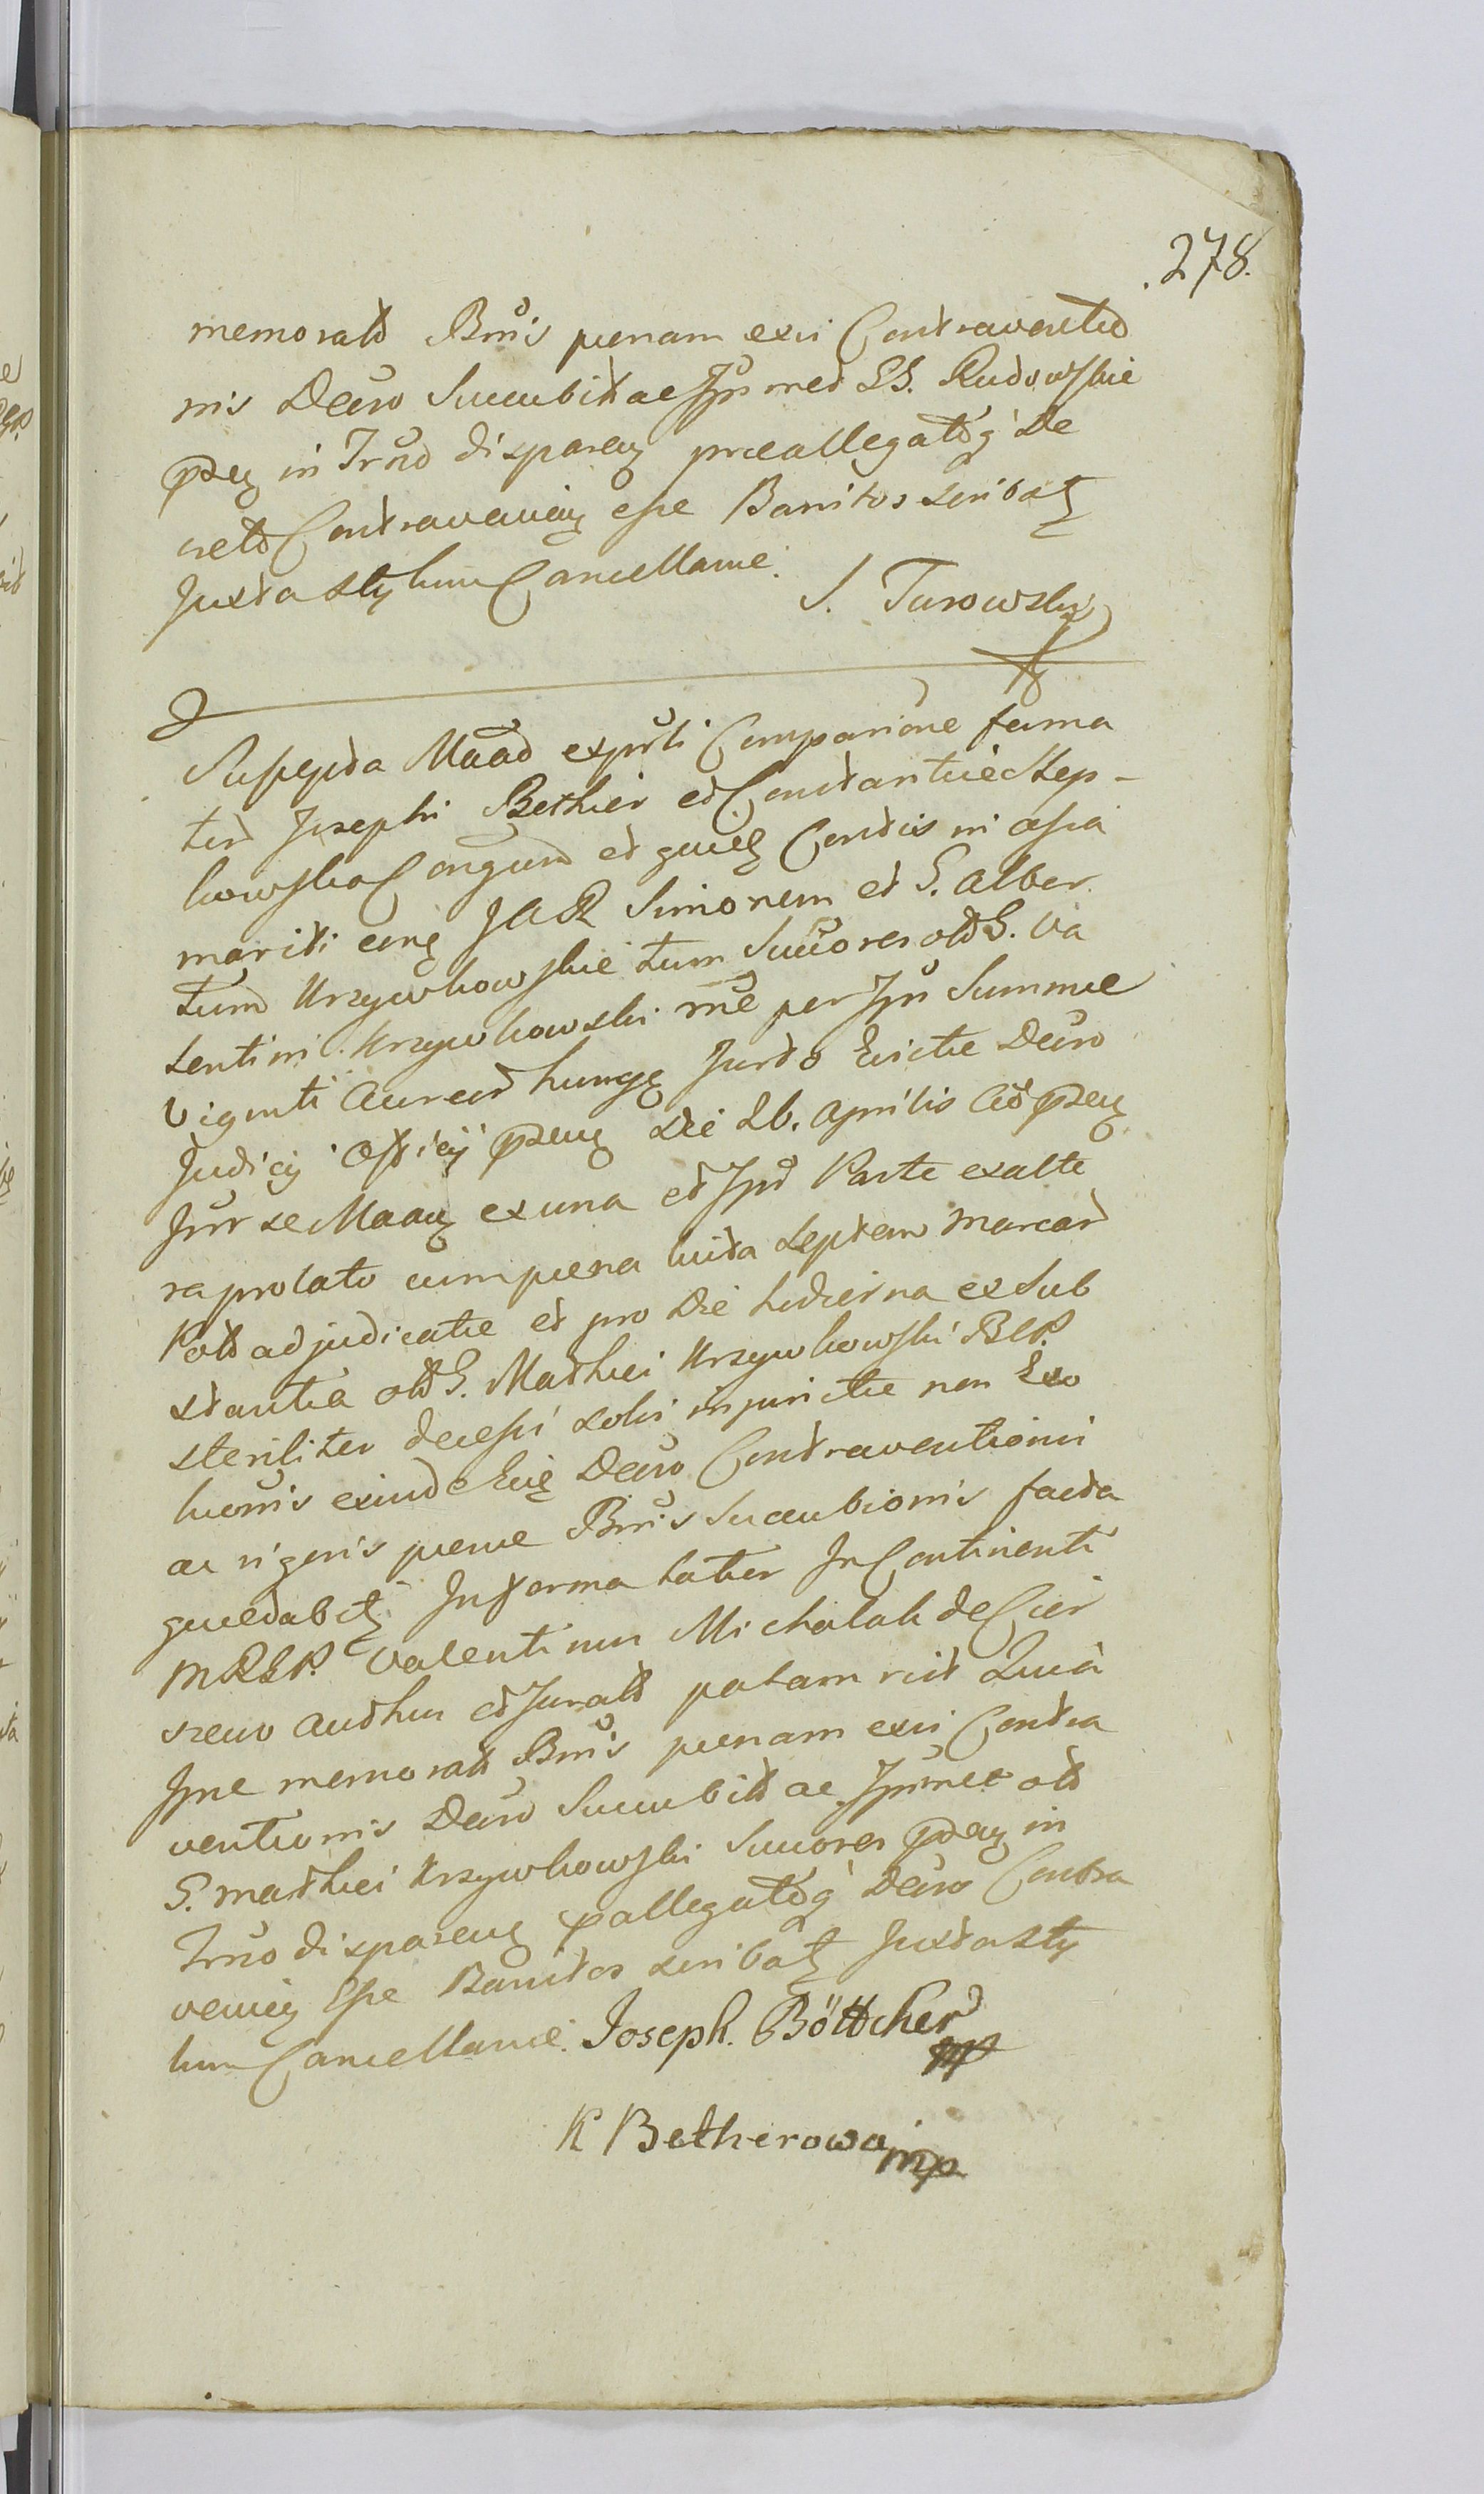 278.
memorato Bnis pœnam exci Contraventio
nis Decro Succubit ac Ipsmet SS. Rudowskie
in Trno disparen præallegatoq De
creto Contravenien esse Banitos scribat
Juxta stylum Cancellariæ.
J. Turowski
Suscepta Maad exprti Comparione fama
tor Josephi Bether et Constantiæ Step-
kowska Congum et Contis in assia
mariti eius JAR Simonem et G. Alber
tum Krzywkowskie tum Succores olt G. Va
lentini Krzywkowski rne per Ipn Summæ
Viginti Aureor hung Jurto Evictæ Decro
Judicy Officy die 26. Aprilis
Inr se Maaq ex una et Ips Parte exalte
ra prolato cum pœna luita septem marcar
Pol adjudicatæ et pro die hodierna ex sub
stantia olt G. Mathei Krzywkowski
steriliter decessi solvi injunctæ non Exo
lucnis exinde Decro Contraventioni
ac rigoris pœnæ Bnis Succubionis facta
In forma latior In Continenti
MRSP. Valentinum Michalak de Cier
szewo Authu et Jurato palam rcit Quia
Ipne memorato Bnis pœnam exci Contra
ventionis Decro Succubit ac Ipsmet olt
G. Mathei Krzywkowski Succores in
Trno disparen pallegatoq Decro Contra
venien Esse Banitos scribat Juxta sty
lum Cancellariæ. Joseph. Böttcher
mp
K Betherowa mp